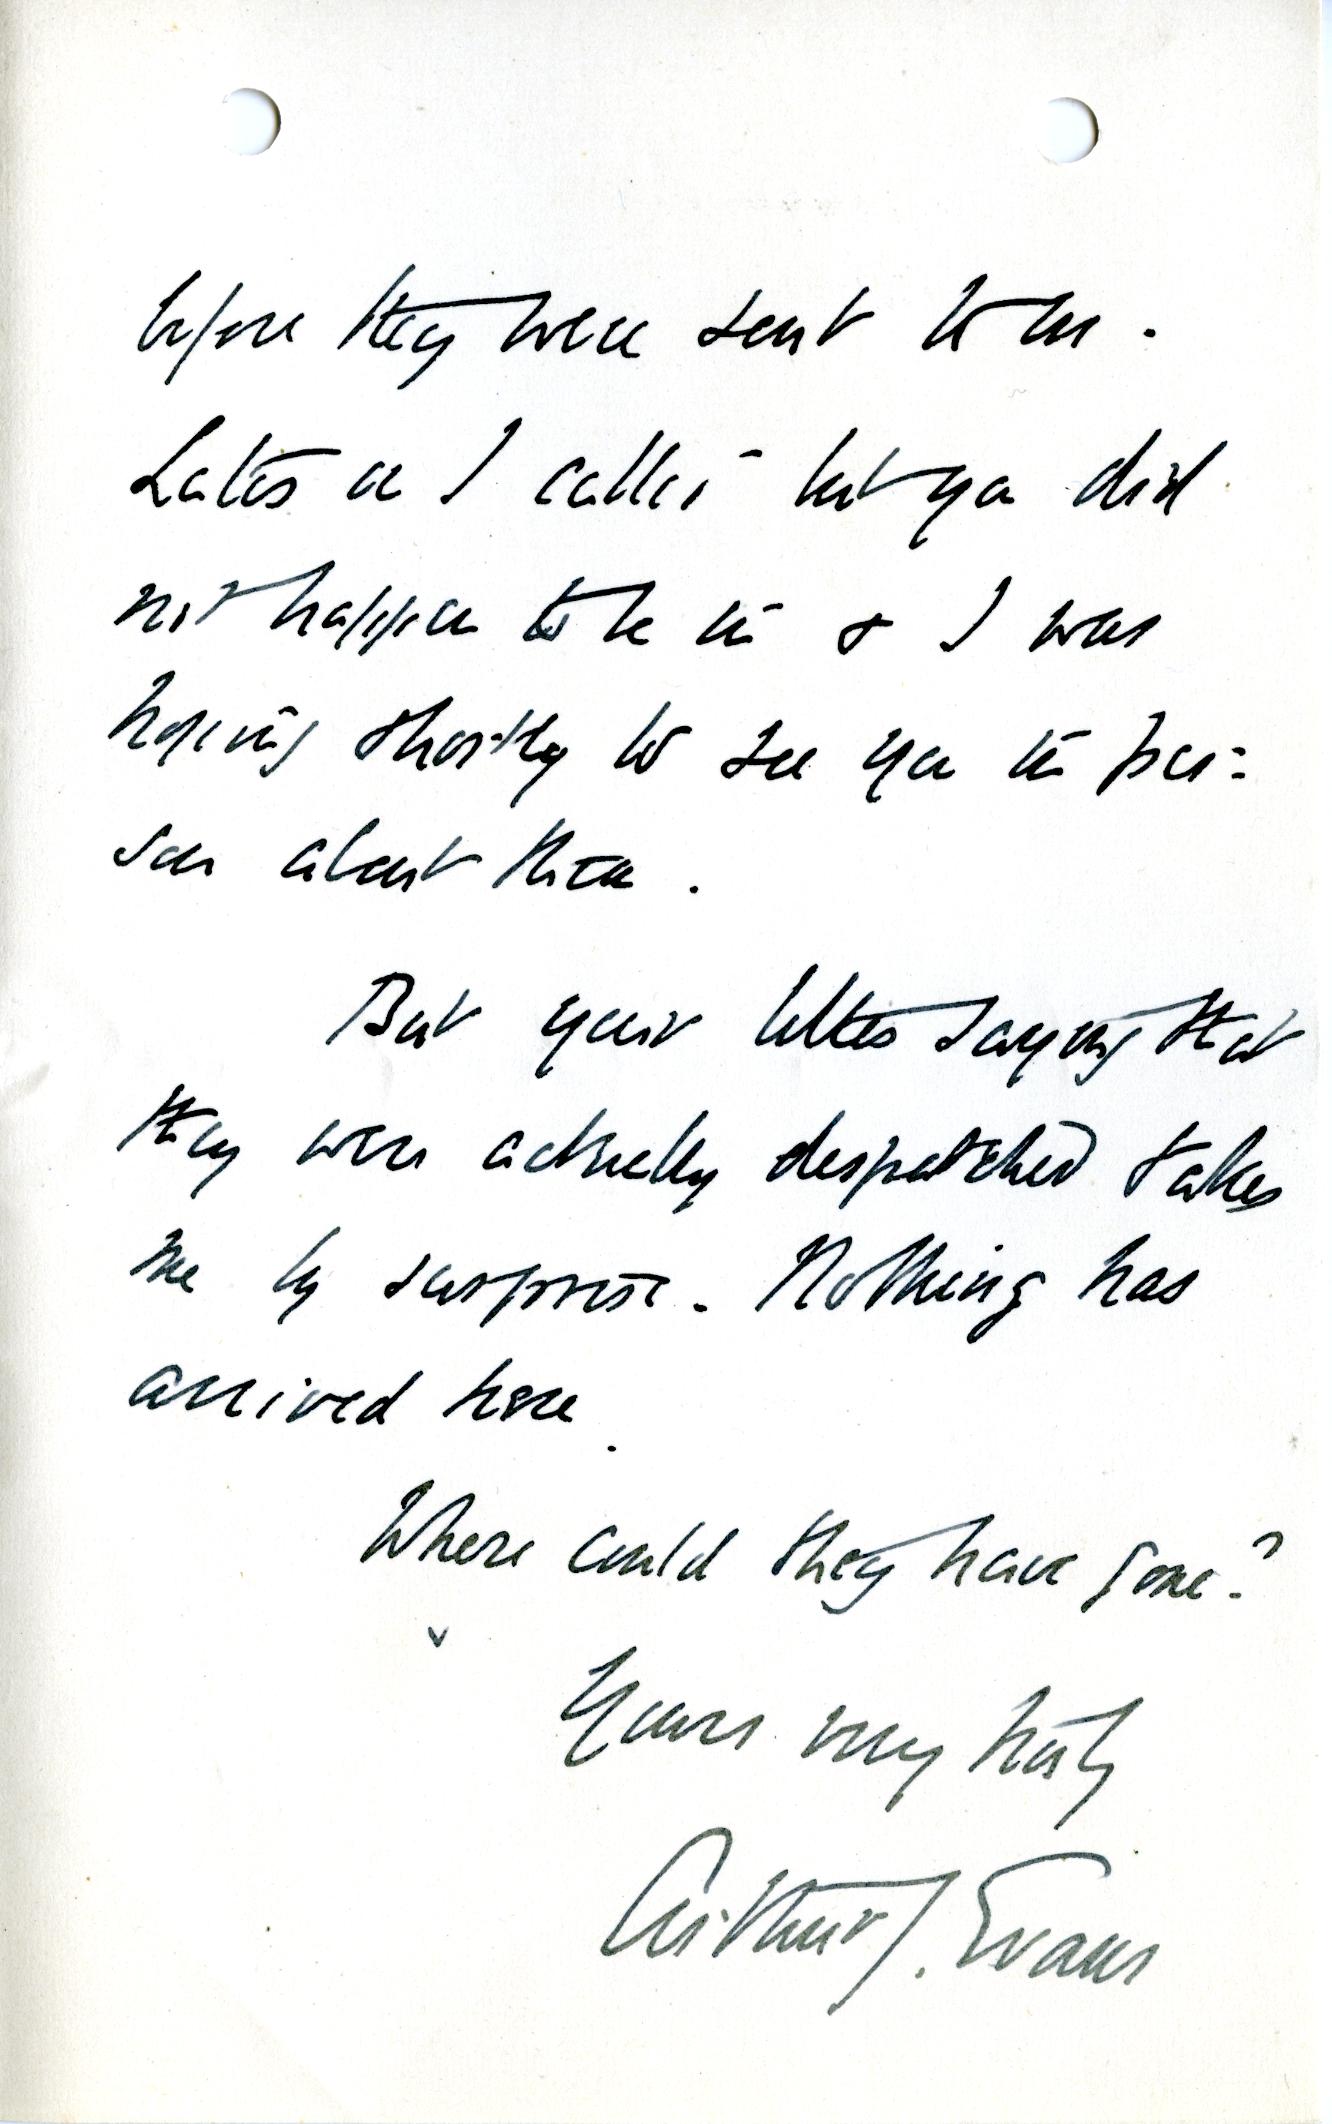 before they were sent to me.
Later on I called but you did
not happen to be in & I was
hoping shortly to see you in per=
son about them.
But your letter saying that
they were actually despatched takes
me by surprise. Nothing has
arrived here.
Where could they have gone?
Yours very truly
Arthur J. Evans